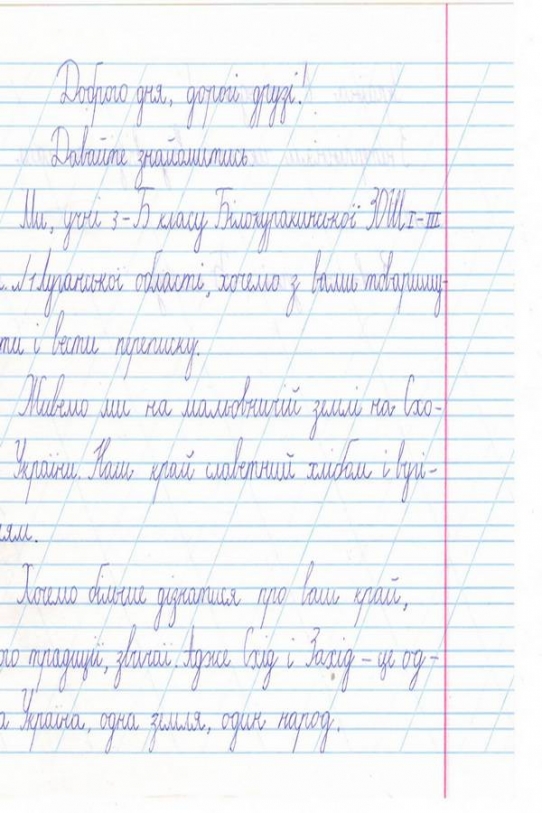 Доброго дня, дорогі друзі!
Давайте знайомитись
Ми, учні 3-Б класу Білокуракинської ЗОШ І-ІІІ
. №1 Луганської області, хочемо з вами товаришу-
ти і вести переписку.
Живемо ми на мальовничій землі на Схо-
України. Наш край славетний хлібом і вугі-
ям.
Хочемо більше дізнатися про ваш край,
го традиції, звичаї. Адже Схід і Захід - це од-
а Україна, одна земля, один народ.